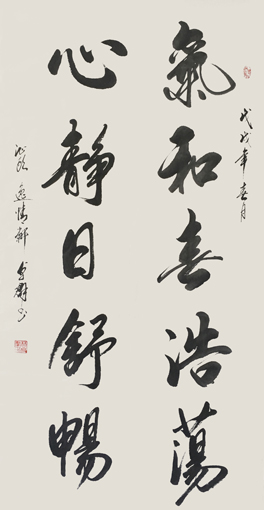 氣和春浩蕩
戊戌年春月
心靜日舒暢
逸情軒